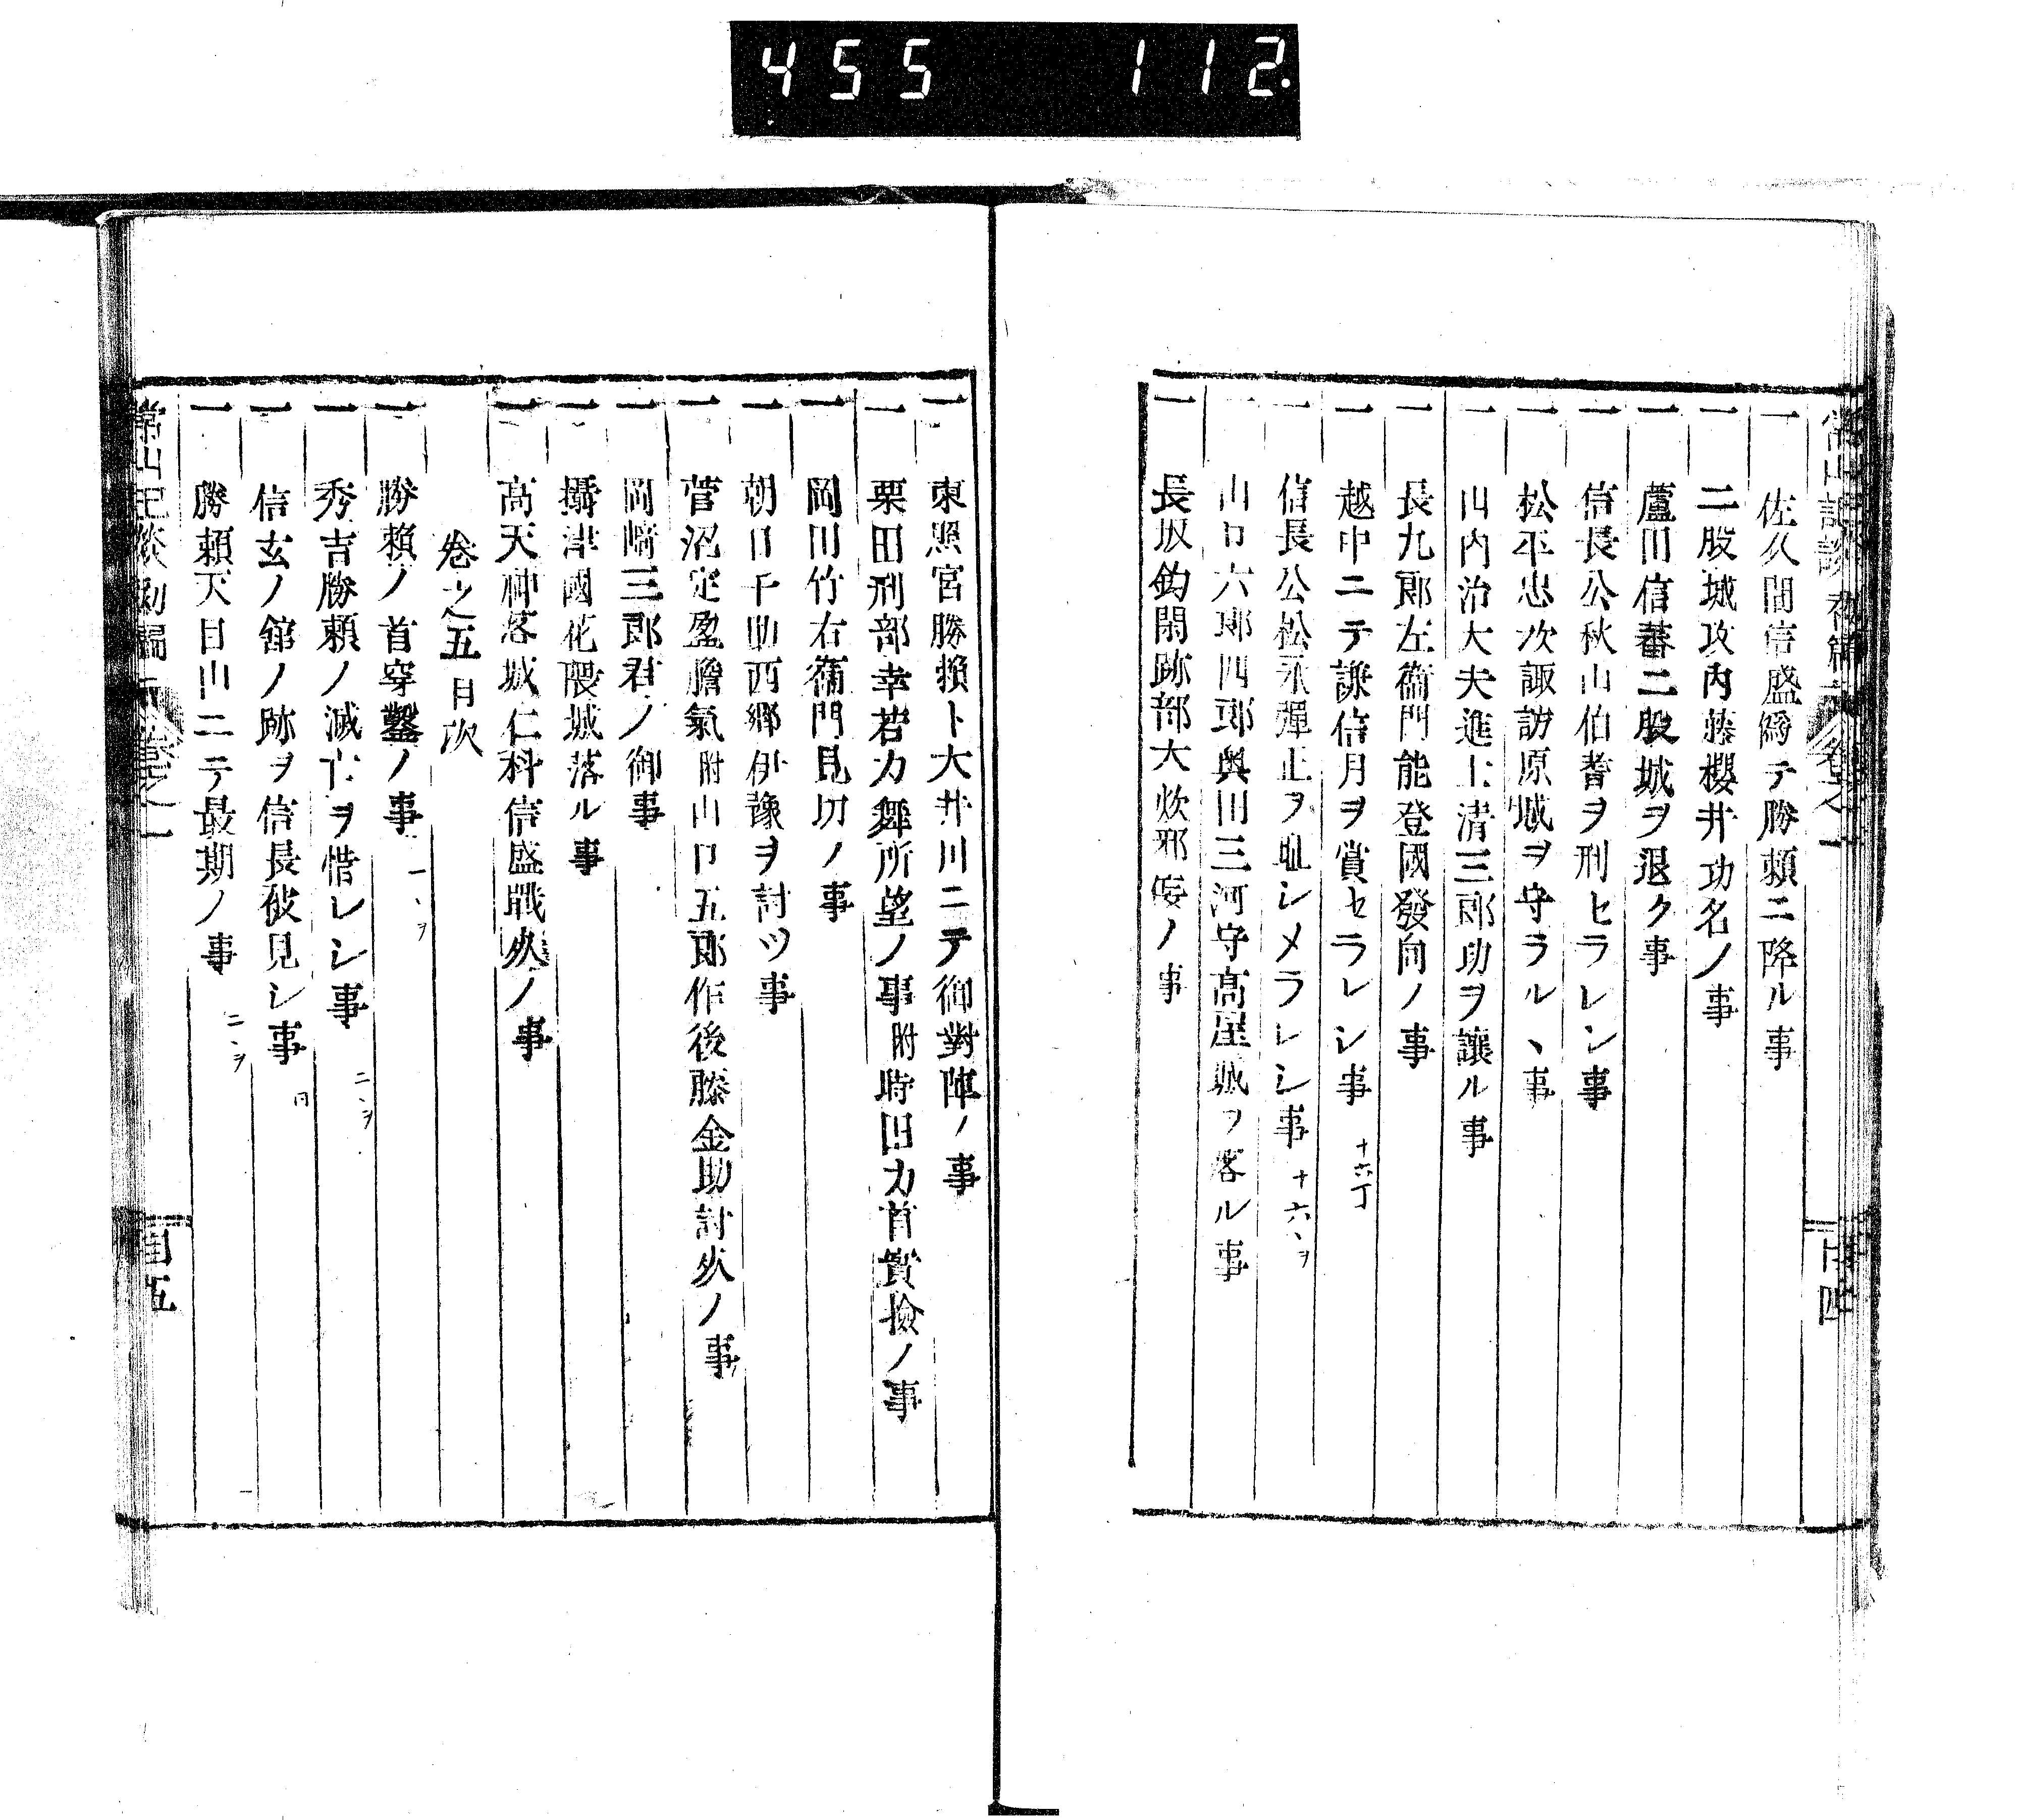 455 112
一 佐久間信盛僞テ勝頼ニ降ル事
一 二股城攻内藤櫻井功名ノ事
一 蘆田信蕃二股城ヲ退ク事
一 信長公秋山伯耆ヲ刑セラレシ事
一 松平忠次諏訪原城ヲ守ラルヽ事
一 山内治大夫進士清三郎功ヲ讓ル事
一 長九郎左衞門能登國發向ノ事
一 越中ニテ謙信月ヲ賞セラレシ事 十六丁
一 信長公松永彈正ヲ耻シメラレシ事 十六、ヲ
一 山口六郎四郎奥田三河守高屋城ヲ落ル事
一 長坂釣閑跡部大炊邪佞ノ事
一 東照宮勝頼ト大井川ニテ御對陣ノ事
一 栗田刑部幸若カ舞所望ノ事附時田カ首實撿ノ事
一 岡田竹右衞門見切ノ事
一 朝日千助西郷伊豫ヲ討ツ事
一 菅沼定盈膽氣附山口五郎作後藤金助討死ノ事
一 岡﨑三郎君ノ御事
一 攝津國花隈城落ル事
一 高天神落城仁科信盛戰死ノ事
卷之五目次
一 勝頼ノ首穿鑿ノ事 一、ヲ
一 秀吉勝頼ノ滅亡ヲ惜レシ事 二、ヲ
一 信玄ノ舘ノ跡ヲ信長被見シ事 同
一 勝頼天目山ニテ最期ノ事 二、ヲ